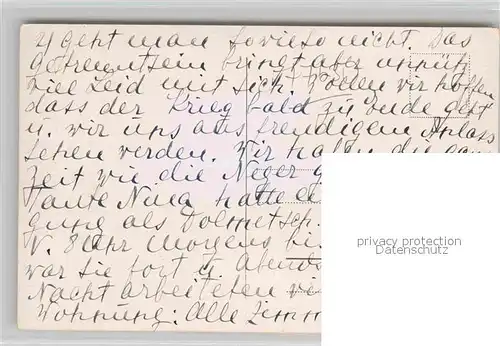 geht man sowieso nicht. Das
Getrenntsein bringt aber unnütz
viel Leid mit sich. Wollen wir hoffen
dass der Krieg bald zu ende geht
u. wir uns aus freudigem Anlass
sehen werden. Wir haben die gan
Zeit wie die Neger g
Tante Nina hatte
gung als Dolmetsch.
V. 8 Uhr morgens bi
war sie fort u. Abend
Nacht arbeiteten wi
Wohnung: Alle Zimm
privacy protection
Datenschutz